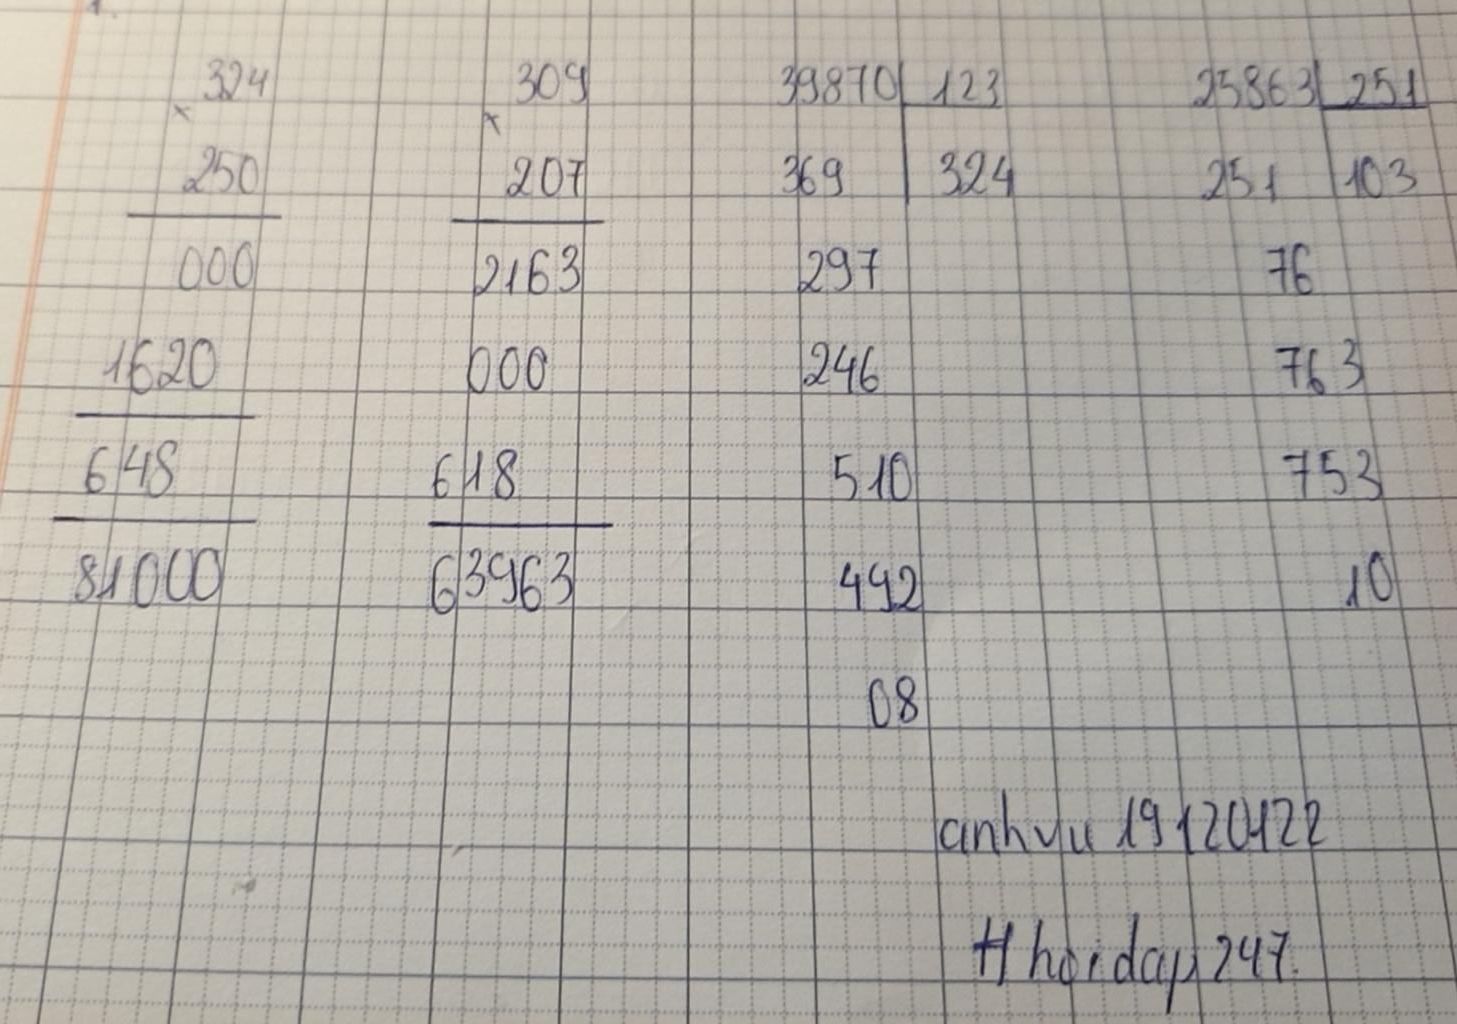 1.
324
×
250
000
1620
648
81000
309
×
207
2163
000
618
63963
39870 123
369 324
297
246
510
492
08
25863 251
251 103
76
763
753
10
anhvu 19120122
# hoidap247.